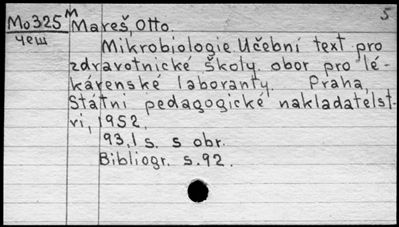 Mo325 M Mareš, Otto. 5
чеш Mikrobiologie. Učební text pro
zdravotnické školy. obor pro lé-
kárenské laboranty. Praha,
Státní pedagogické nakladatelst-
ví, 1952.
93,1 s. s obr.
Bibliogr. s.92.